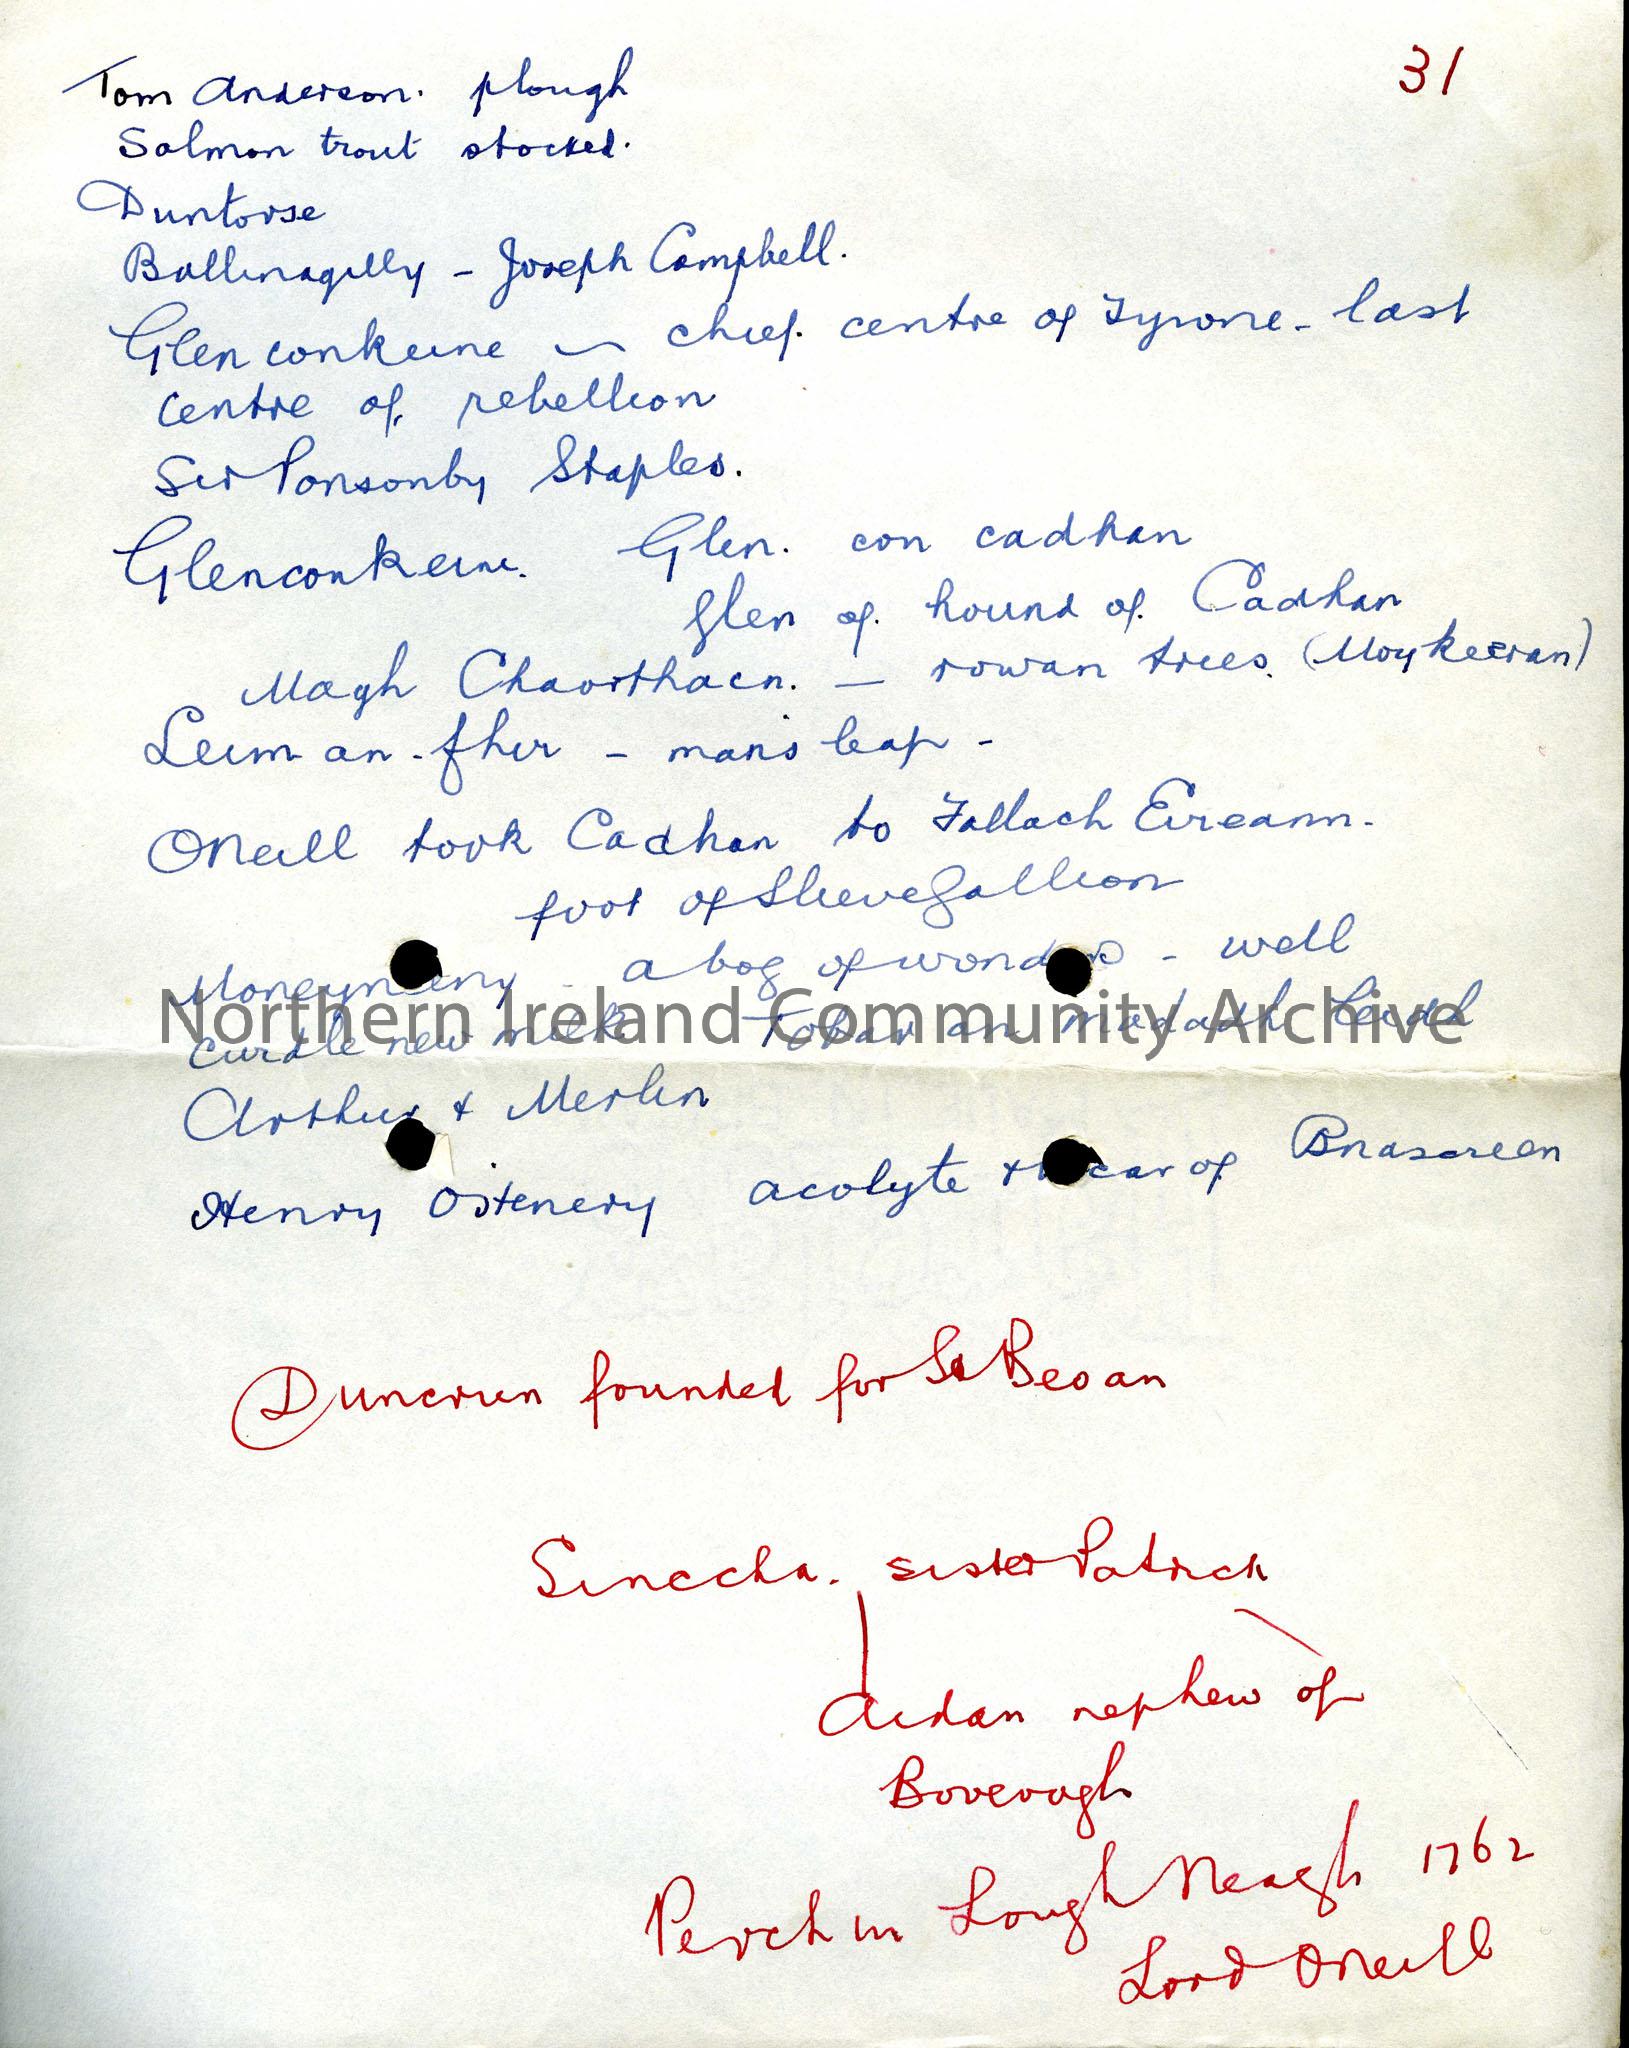 31
Tom Anderson. plough
Salmon trout stocked.
Duntorse
Ballinagilly - Joseph Campbell.
Glenconkeine - chief. centre of Tyrone - last
centre of rebellion
Sir Ponsonby Staples.
Glenconkeine. Glen. con cadhan
glen of. hound of. Cadhan
Magh Chaorthacn. - rowan trees. (Moykeeran)
Leim an-fhir - man's leap -
O Neill took Cadhan to Tallach Eireann.
foot of Slieve Gallion
a bog of wonders - well
curdle new milk Tobar an madadh
Arthur & Merlin
Henry acolyte of
Northern Ireland Community Archive
Duncrun founded for St Beoan
Sinecha. sister Patrick
Aidan nephew of
Boveragh
Perch in Lough Neagh 1762
Lord O Neill